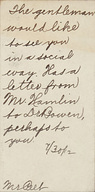 The gentleman
would like
to see you
in a social
way. Has a
letter from
Mr Hamlin
to Dr Bowen,
perhaps to
you
7/30/2
Mr